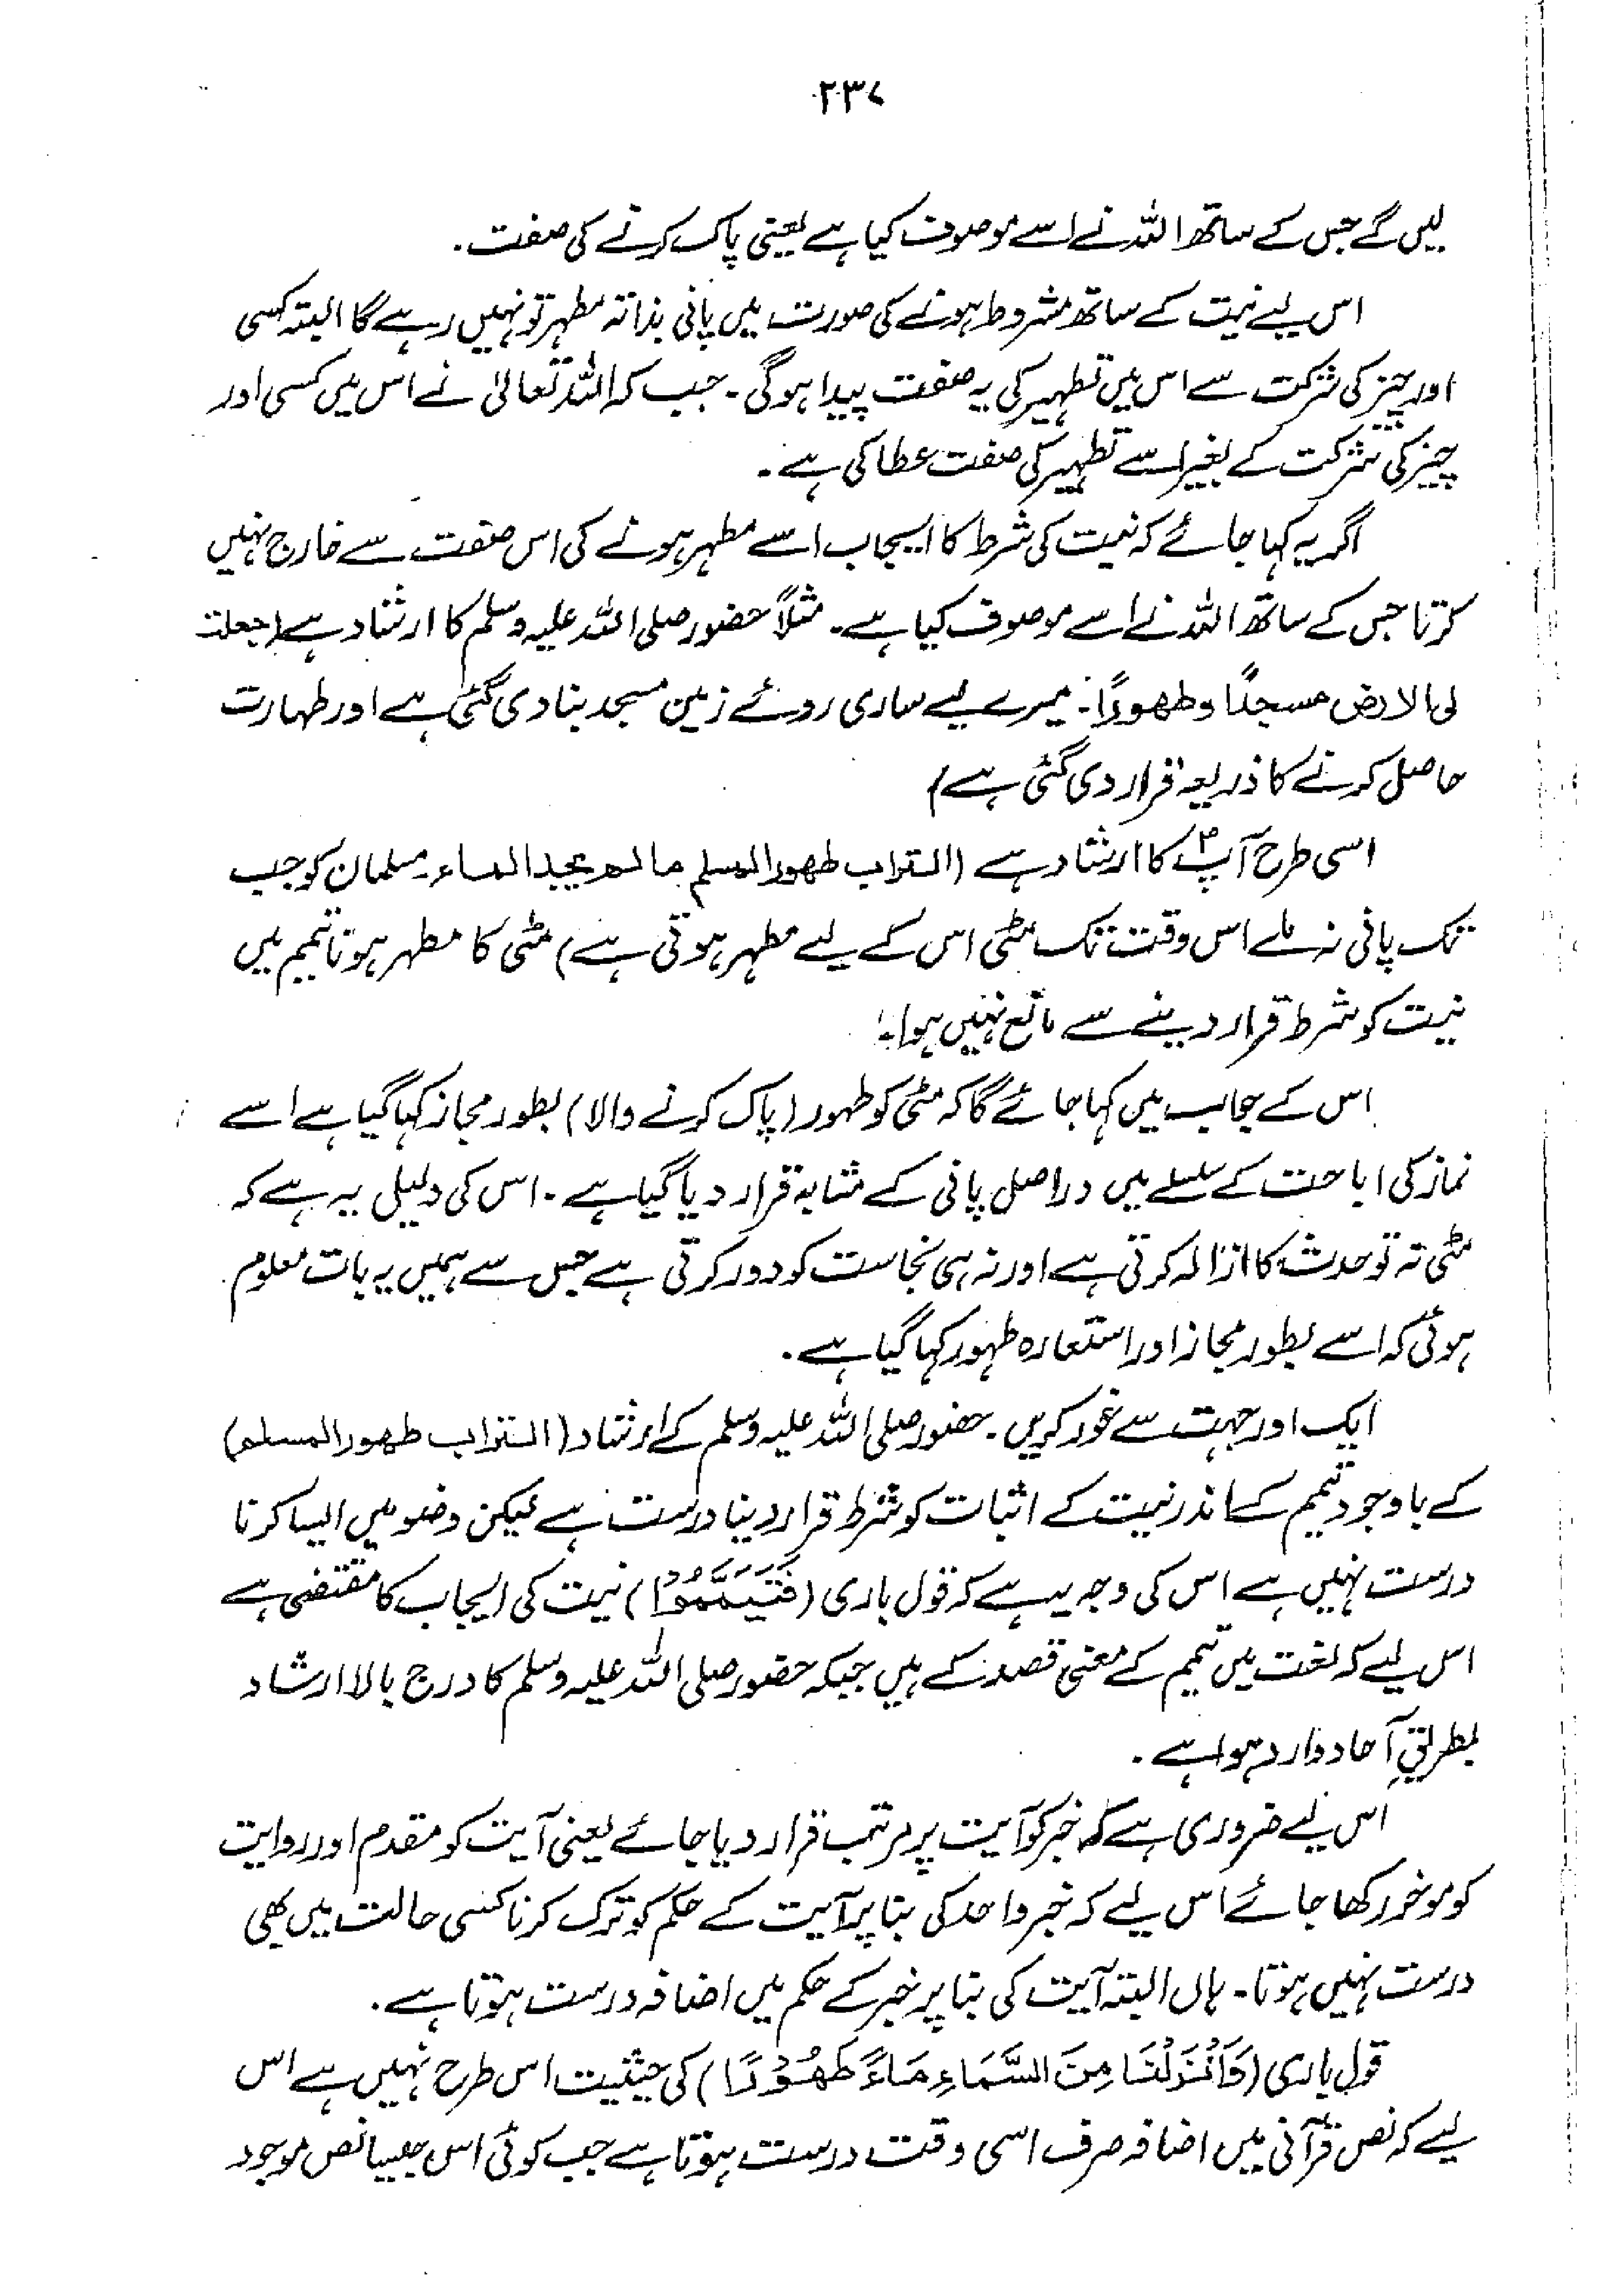 ۲۳۷
لیں گے جس کے ساتھ اللہ نے اسے موصوف کیا ہے یعنی پاک کرنے کی صفت۔
اس لیے نیت کے ساتھ مشروط ہونے کی صورت میں پانی بذاتہ مطہر تو نہیں رہے گا البتہ کسی
اور چیز کی شرکت سے اس میں تطہیر کی یہ صفت پیدا ہوگی۔ جب کہ اللہ تعالیٰ نے اس میں کسی اور
چیز کی شرکت کے بغیر اسے تطہیر کی صفت عطا کی ہے۔
اگر یہ کہا جائے کہ نیت کی شرط کا ایجاب اسے مطہر ہونے کی اس صفت سے خارج نہیں
کرتا جس کے ساتھ اللہ نے اسے موصوف کیا ہے۔ مثلاً حضور صلی اللہ علیہ وسلم کا ارشاد ہے (جعلت
لی الارض مسجدًا وطھورًا۔ میرے لیے ساری روئے زمین مسجد بنا دی گئی ہے اور طہارت
حاصل کرنے کا ذریعہ قرار دی گئی ہے)
اسی طرح آپؐ کا ارشاد ہے (التراب طھور المسلم مالم یجد الماء۔ مسلمان کو جب
تک پانی نہ ملے اس وقت تک مٹی اس کے لیے مطہر ہوتی ہے) مٹی کا مطہر ہونا تیمم میں
نیت کو شرط قرار دینے سے مانع نہیں ہوا۔
اس کے جواب میں کہا جائے گا کہ مٹی کو طہور (پاک کرنے والا) بطور مجاز کہا گیا ہے اسے
نماز کی اباحت کے سلسلے میں دراصل پانی کے مشابہ قرار دیا گیا ہے۔ اس کی دلیل یہ ہے کہ
مٹی نہ تو حدث کا ازالہ کرتی ہے اور نہ ہی نجاست کو دور کرتی ہے جس سے ہمیں یہ بات معلوم
ہوئی کہ اسے بطور مجاز اور استعارہ طہور کہا گیا ہے۔
ایک اور جہت سے غور کریں۔ حضور صلی اللہ علیہ وسلم کے ارشاد (التراب طھور المسلم)
کے باوجود تیمم کے اندر نیت کے اثبات کو شرط قرار دینا درست ہے لیکن وضو میں ایسا کرنا
درست نہیں ہے اس کی وجہ یہ ہے کہ قول باری (فَتَيَمَّمُوْا) نیت کی ایجاب کا مقتضی ہے
اس لیے کہ لغت میں تیمم کے معنی قصد کے ہیں جبکہ حضور صلی اللہ علیہ وسلم کا درج بالا ارشاد
بطریقِ آحاد وارد ہوا ہے۔
اس لیے ضروری ہے کہ خبر کو آیت پر مرتب قرار دیا جائے یعنی آیت کو مقدم اور روایت
کو موخر رکھا جائے اس لیے کہ خبر واحد کی بنا پر آیت کے حکم کو ترک کرنا کسی حالت میں بھی
درست نہیں ہوتا۔ ہاں البتہ آیت کی بنا پر خبر کے حکم میں اضافہ درست ہوتا ہے۔
قول باری (وَاَنْزَلْنَا مِنَ السَّمَاءِ مَاءً طَهُوْرًا) کی حیثیت اس طرح نہیں ہے اس
لیے کہ نص قرآنی میں اضافہ صرف اسی وقت درست ہوتا ہے جب کوئی اس جیسا نص موجود